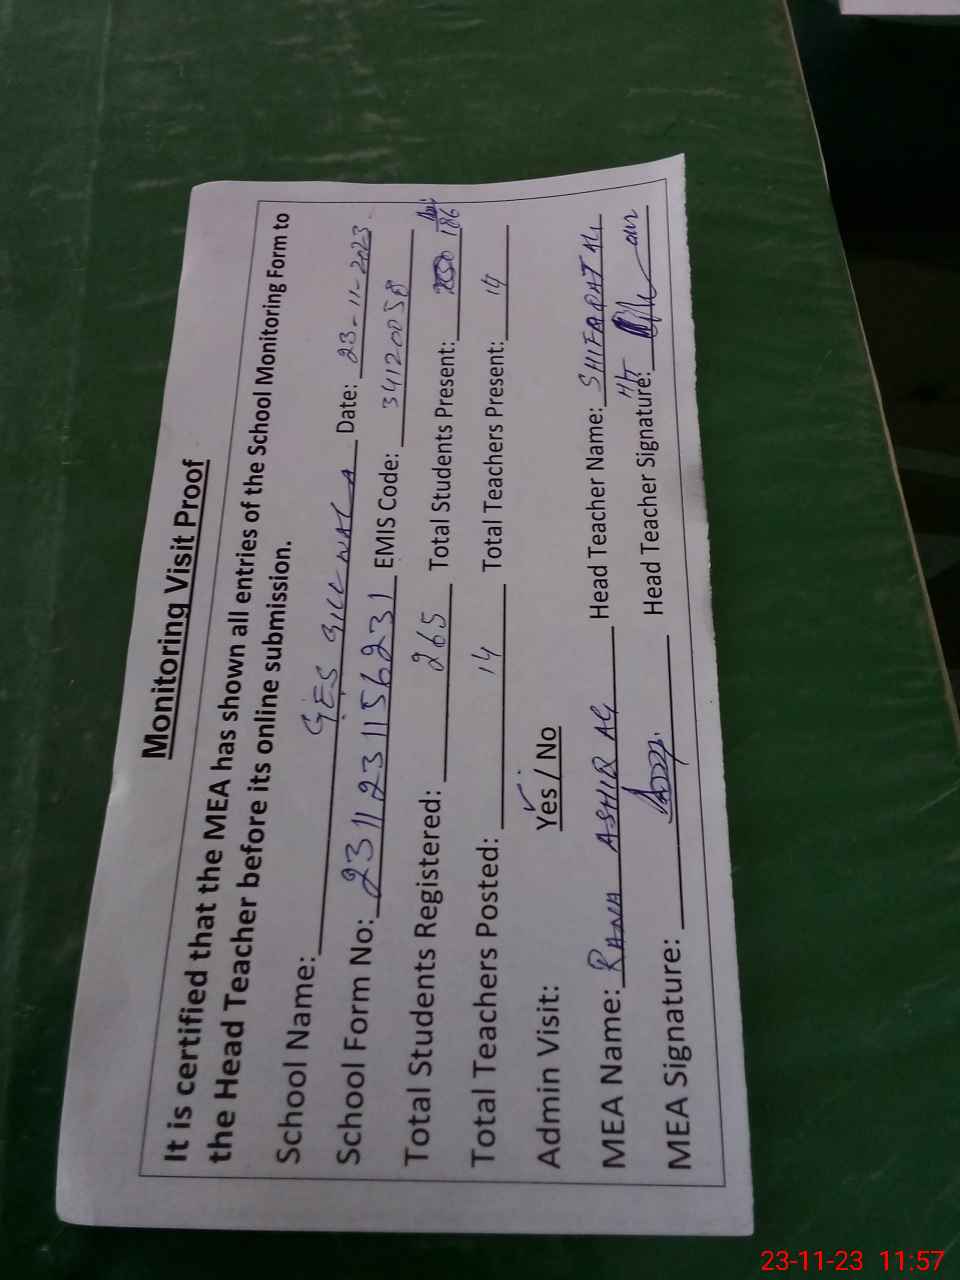 Monitoring Visit Proof
It is certified that the MEA has shown all entries of the School Monitoring Form to
the Head Teacher before its online submission.
School Name: GES GILL WALA Date: 23-11-2023
School Form No: 23112311156231 EMIS Code: 34120058
Total Students Registered: 265 Total Students Present: 186
Total Teachers Posted: 14 Total Teachers Present: 14
Admin Visit: Yes / No
MEA Name: RANA ASHIR ALI Head Teacher Name: ALI
MEA Signature: Head Teacher Signature:
23-11-23 11:57